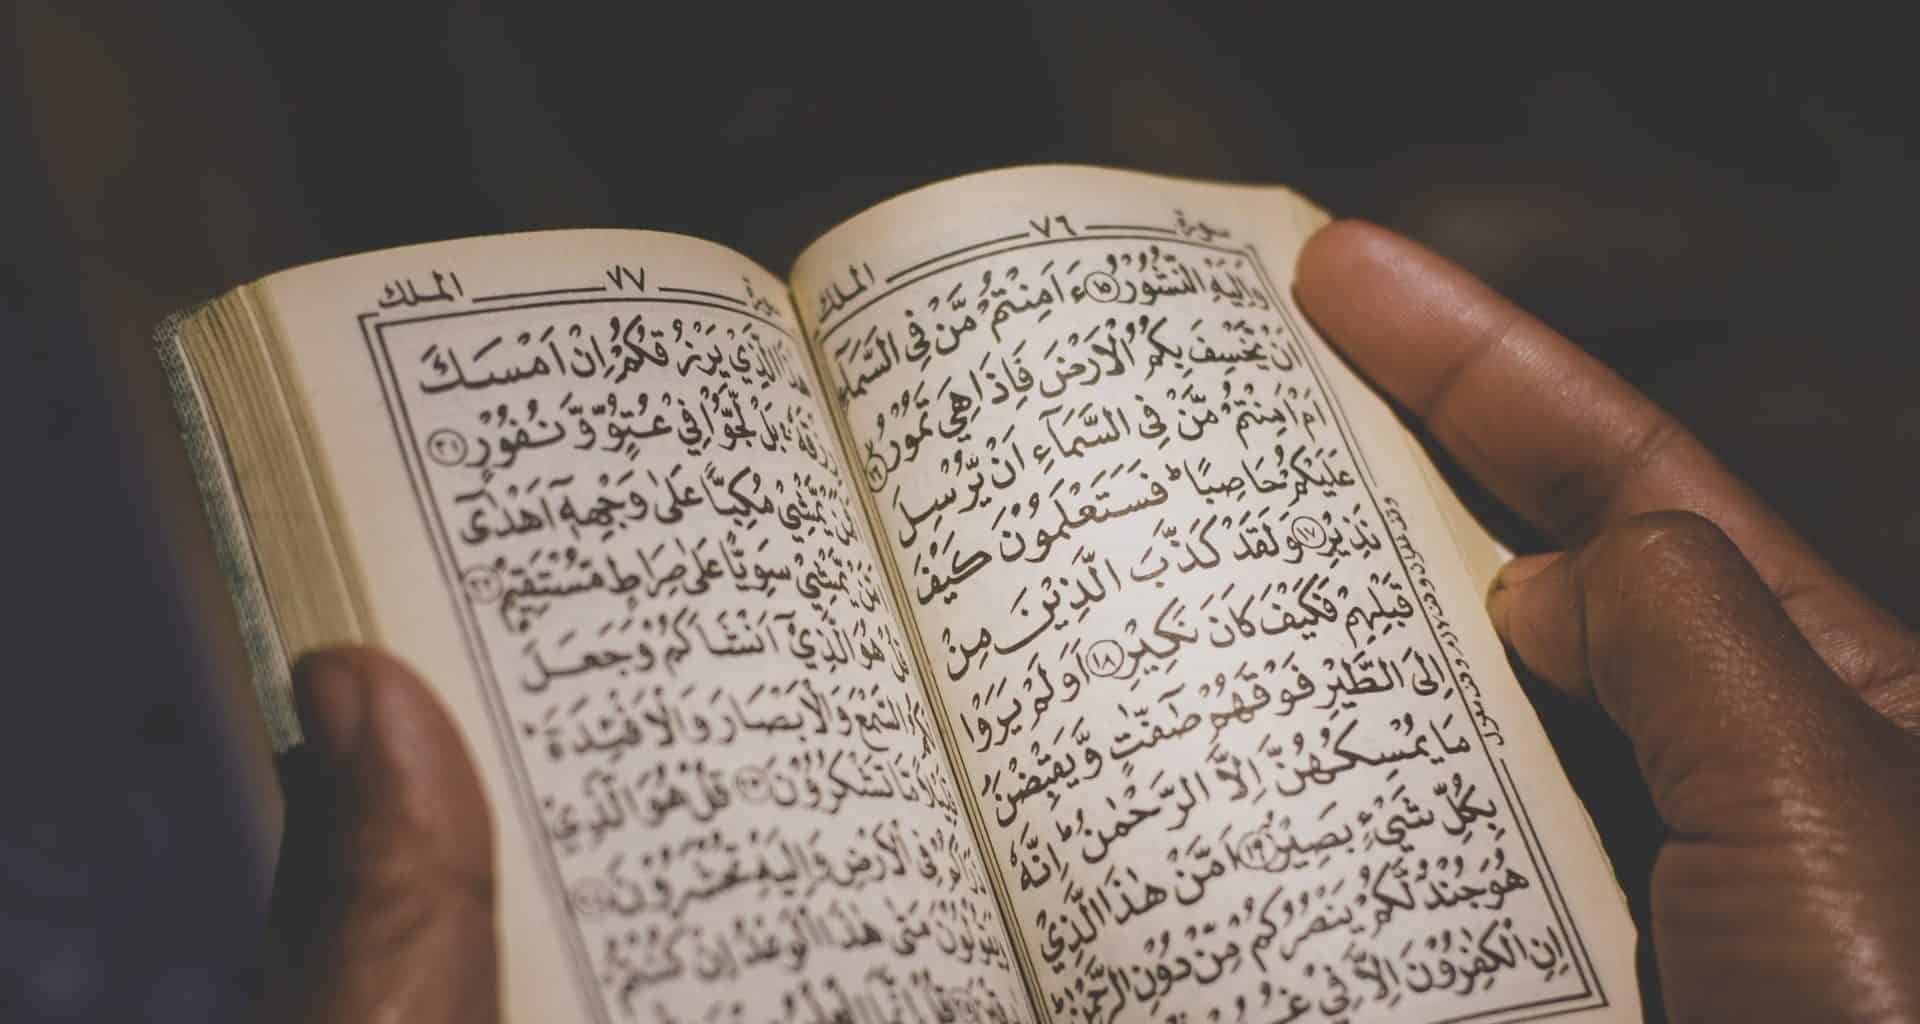 سورة ٧٦ الملك
وَاِلَيْهِ النُّشُوْرُ ۝١٥ ءَاَمِنْتُمْ مَّنْ فِى السَّمَآءِ
اَنْ يَّخْسِفَ بِكُمُ الْاَرْضَ فَاِذَا هِيَ تَمُوْرُ ۝١٦
اَمْ اَمِنْتُمْ مَّنْ فِى السَّمَآءِ اَنْ يُّرْسِلَ
عَلَيْكُمْ حَاصِبًا ؕ فَسَتَعْلَمُوْنَ كَيْفَ
نَذِيْرِ ۝١٧ وَلَقَدْ كَذَّبَ الَّذِيْنَ مِنْ
قَبْلِهِمْ فَكَيْفَ كَانَ نَكِيْرِ ۝١٨ اَوَلَمْ يَرَوْا
اِلَى الطَّيْرِ فَوْقَهُمْ صٰٓفّٰتٍ وَّيَقْبِضْنَ
مَا يُمْسِكُهُنَّ اِلَّا الرَّحْمٰنُ ؕ اِنَّهٗ
بِكُلِّ شَيْءٍۭ بَصِيْرٌ ۝١٩ اَمَّنْ هٰذَا الَّذِيْ
هُوَ جُنْدٌ لَّكُمْ يَنْصُرُكُمْ مِّنْ دُوْنِ الرَّحْمٰنِ ؕ
اِنِ الْكٰفِرُوْنَ اِلَّا فِيْ
سورة ٧٧ الملك
هٰذَا الَّذِيْ يَرْزُقُكُمْ اِنْ اَمْسَكَ
رِزْقَهٗ ۚ بَلْ لَّجُّوْا فِيْ عُتُوٍّ وَّنُفُوْرٍ ۝٢١
اَفَمَنْ يَّمْشِيْ مُكِبًّا عَلٰى وَجْهِهٖۤ اَهْدٰۤى
اَمَّنْ يَّمْشِيْ سَوِيًّا عَلٰى صِرَاطٍ مُّسْتَقِيْمٍ ۝٢٢
قُلْ هُوَ الَّذِيْۤ اَنْشَاَكُمْ وَجَعَلَ
لَكُمُ السَّمْعَ وَالْاَبْصَارَ وَالْاَفْئِدَةَ ؕ
قَلِيْلًا مَّا تَشْكُرُوْنَ ۝٢٣ قُلْ هُوَ الَّذِيْ
ذَرَاَكُمْ فِى الْاَرْضِ وَاِلَيْهِ تُحْشَرُوْنَ ۝٢٤
وَيَقُوْلُوْنَ مَتٰى هٰذَا الْوَعْدُ اِنْ كُنْتُمْ
قُلْ اِنَّمَا الْعِلْمُ